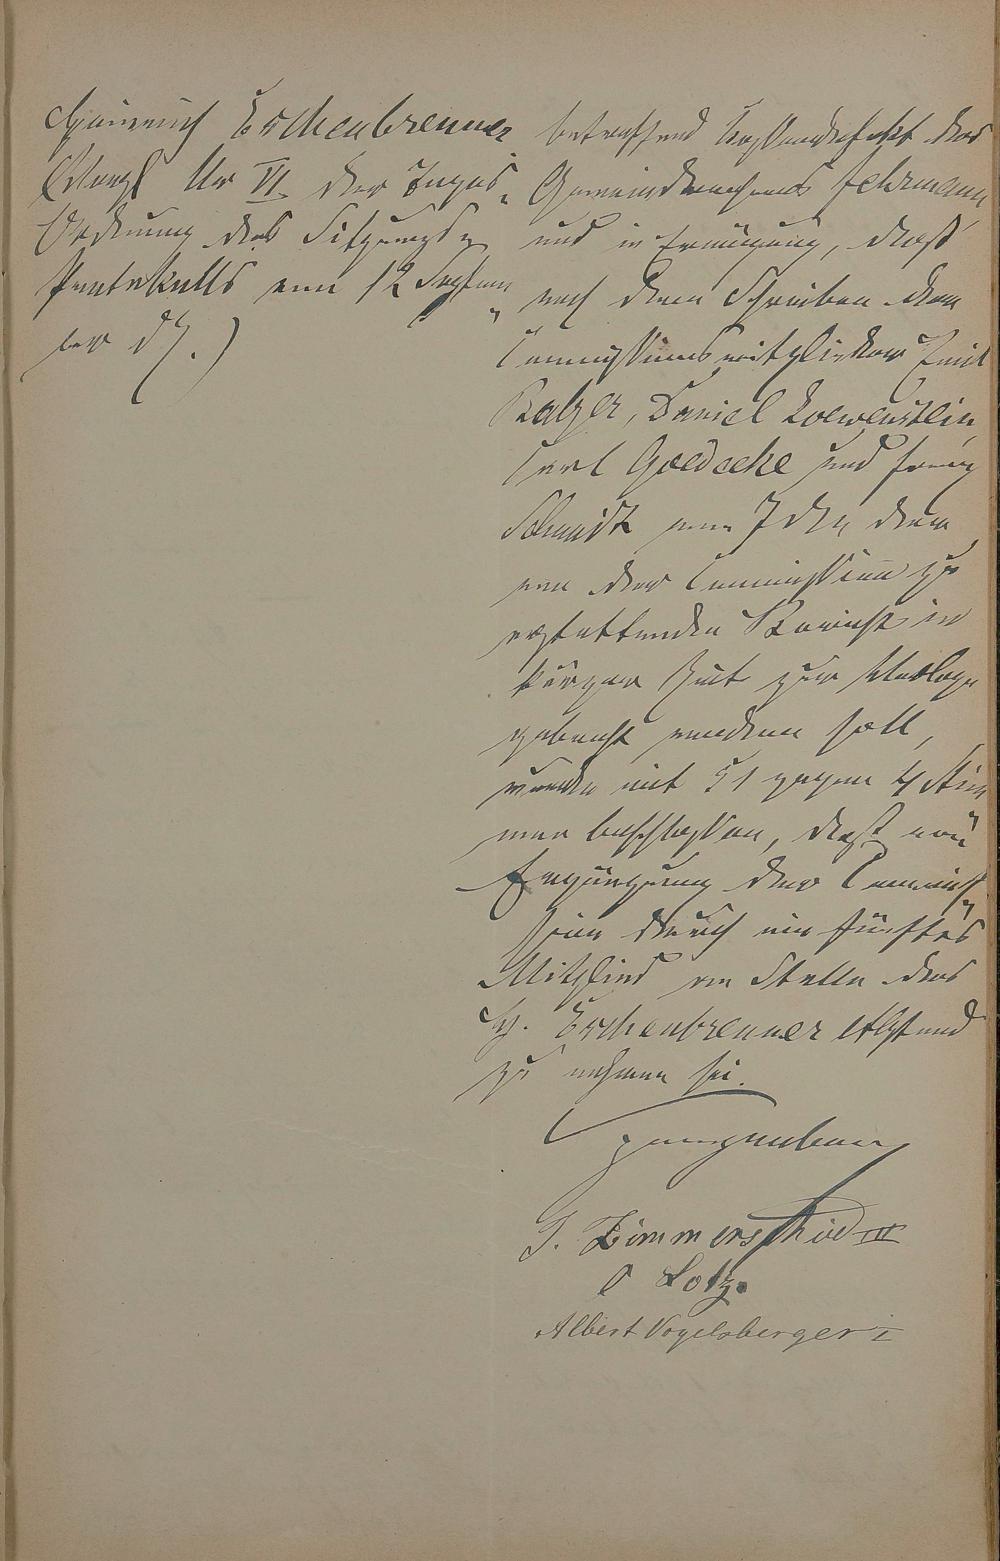 Heinrich Eschenbrenner
(Vergl. Nro VI der Tages-
Ordnung des Sitzungs-
Protokolls vom 12 Septem-
ber dJ.)
betreffend Kassendefekt des
Gemeinderechners Fehrmann,
und in Erwägung, dass
nach dem Schreiben der
Commissionsmitglieder Emil
Balzer, Daniel Loewenstein,
Carl Goedecke und Franz
Schmidt vom 7 dM der
von der Commission zu
erstattende Bericht in
kürzer Zeit zur Vorlage
gebracht werden soll,
wurde mit 51 gegen 4 Stim
men beschlossen, dass von
Ergänzung der Commis-
sion durch ein fünftes
Mitglied an Stelle des
H. Eschenbrenner Abstand
zu nehmen sei.
J. Zimmerschied III
C Lotz.
Albert Vogelsberger I